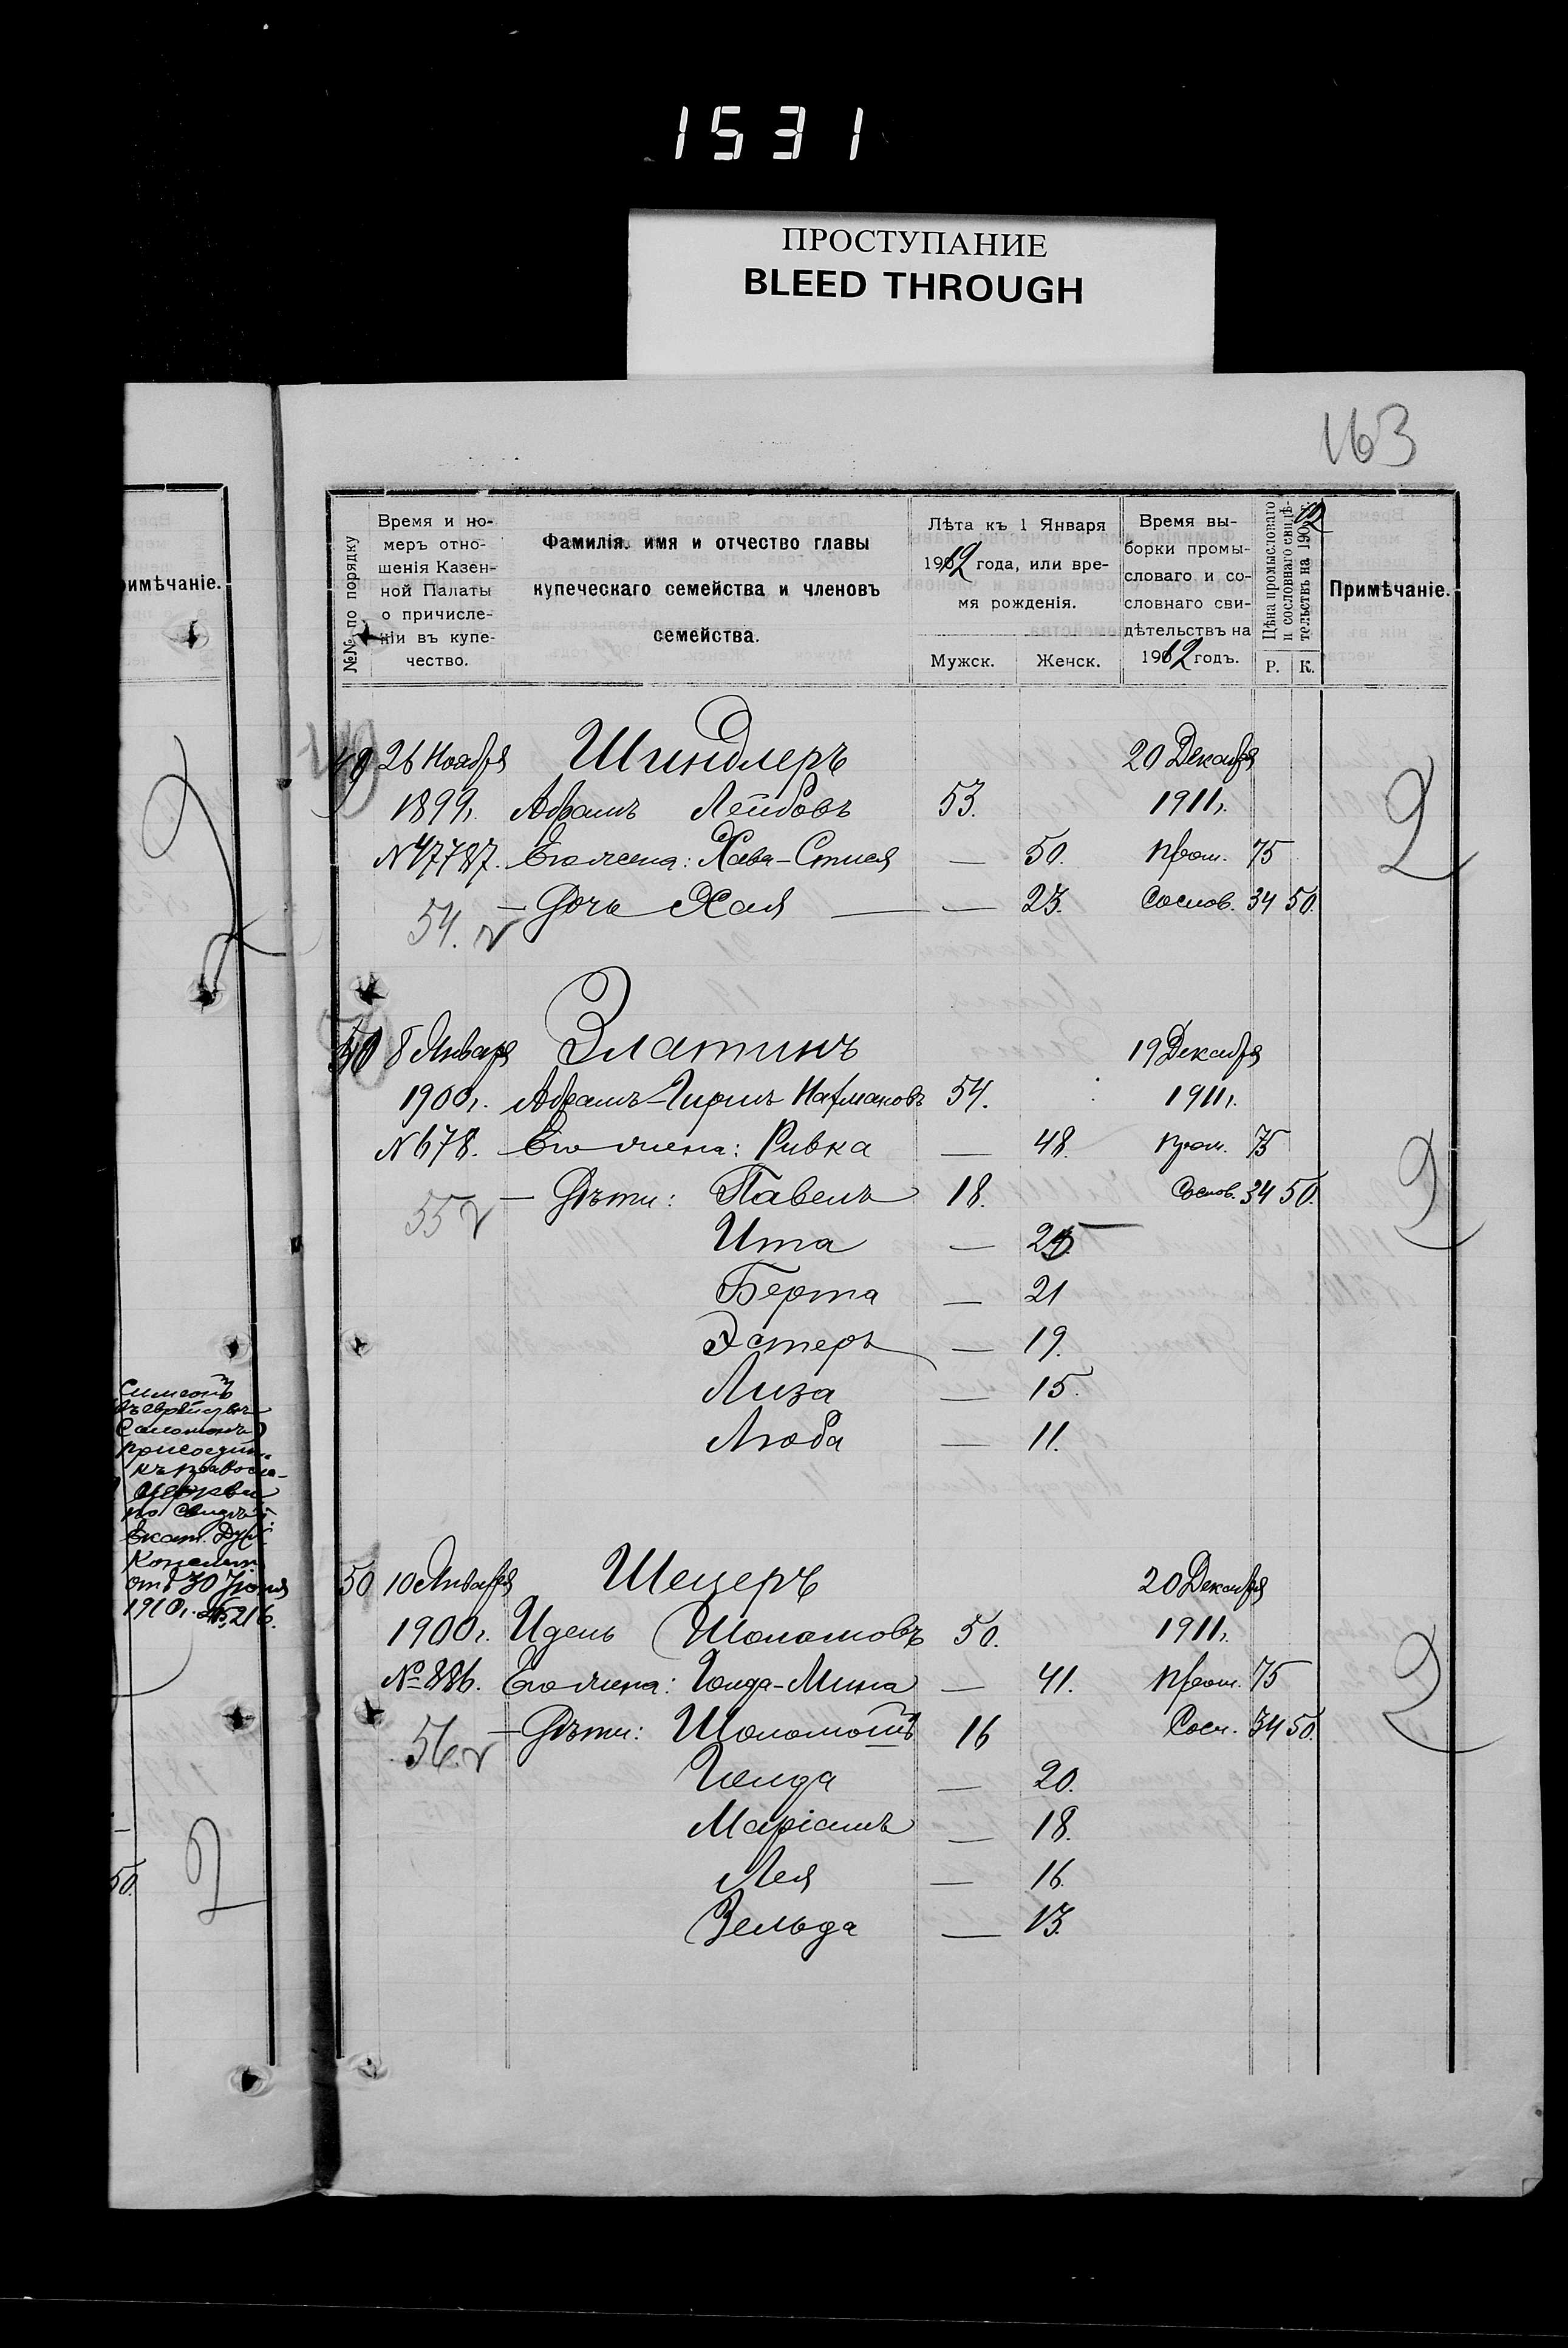 1531
ПРОСТУПАНИЕ
BLEED THROUGH
163
римѣчаніе.
№№ по порядку
Время и но-
меръ отно-
шенія Казен-
ной Палаты
о причисле-
ніи въ купе-
чество.
Фамилія. имя и отчество главы
купеческаго семейства и членовъ
семейства.
Лѣта къ 1 Января
1912 года, или вре-
мя рожденія.
Мужск. Женск.
Время вы-
борки промы-
словаго и со-
словнаго сви-
дѣтельствъ на
1912 годъ.
Цѣна промысловаго
и сословнаго свидѣ-
тельствъ на 1912
Р. К.
Примѣчаніе.
49 26 Ноября Шиндлеръ 20 Декабря
1899г. Абрамъ Лейбовъ 53. 1911г.
№47787. Его жена: Хава- — 50. Пром. 75
— Дочь Хая — — 23. Сослов. 34 50.
54.
50 8 Января Златинъ 19 Декабря
1900г. Абрамъ-Гиршъ Нахмановъ 54. 1911г.
№678. Его жена: Ривка — 48. Пром. 75
— Дѣти: Павелъ 18. Сослов. 34 50.
55
Ита — 25
Берта — 21
Эстеръ — 19.
Лиза — 15.
Люба — 11.
50 10 Января Шецеръ 20 Декабря
1900г. Идель Шоломовъ 50. 1911г.
№886. Его жена: Голда-Мина — 41. Пром. 75
— Дѣти: Шоломонъ 16 Сосл. 34 50.
56.
Генда — 20.
Маріамъ — 18.
Лея — 16.
Зельда — 13.
2
2
2
2
Церкви
отъ 30 Іюня
1910г. №5216.
50.